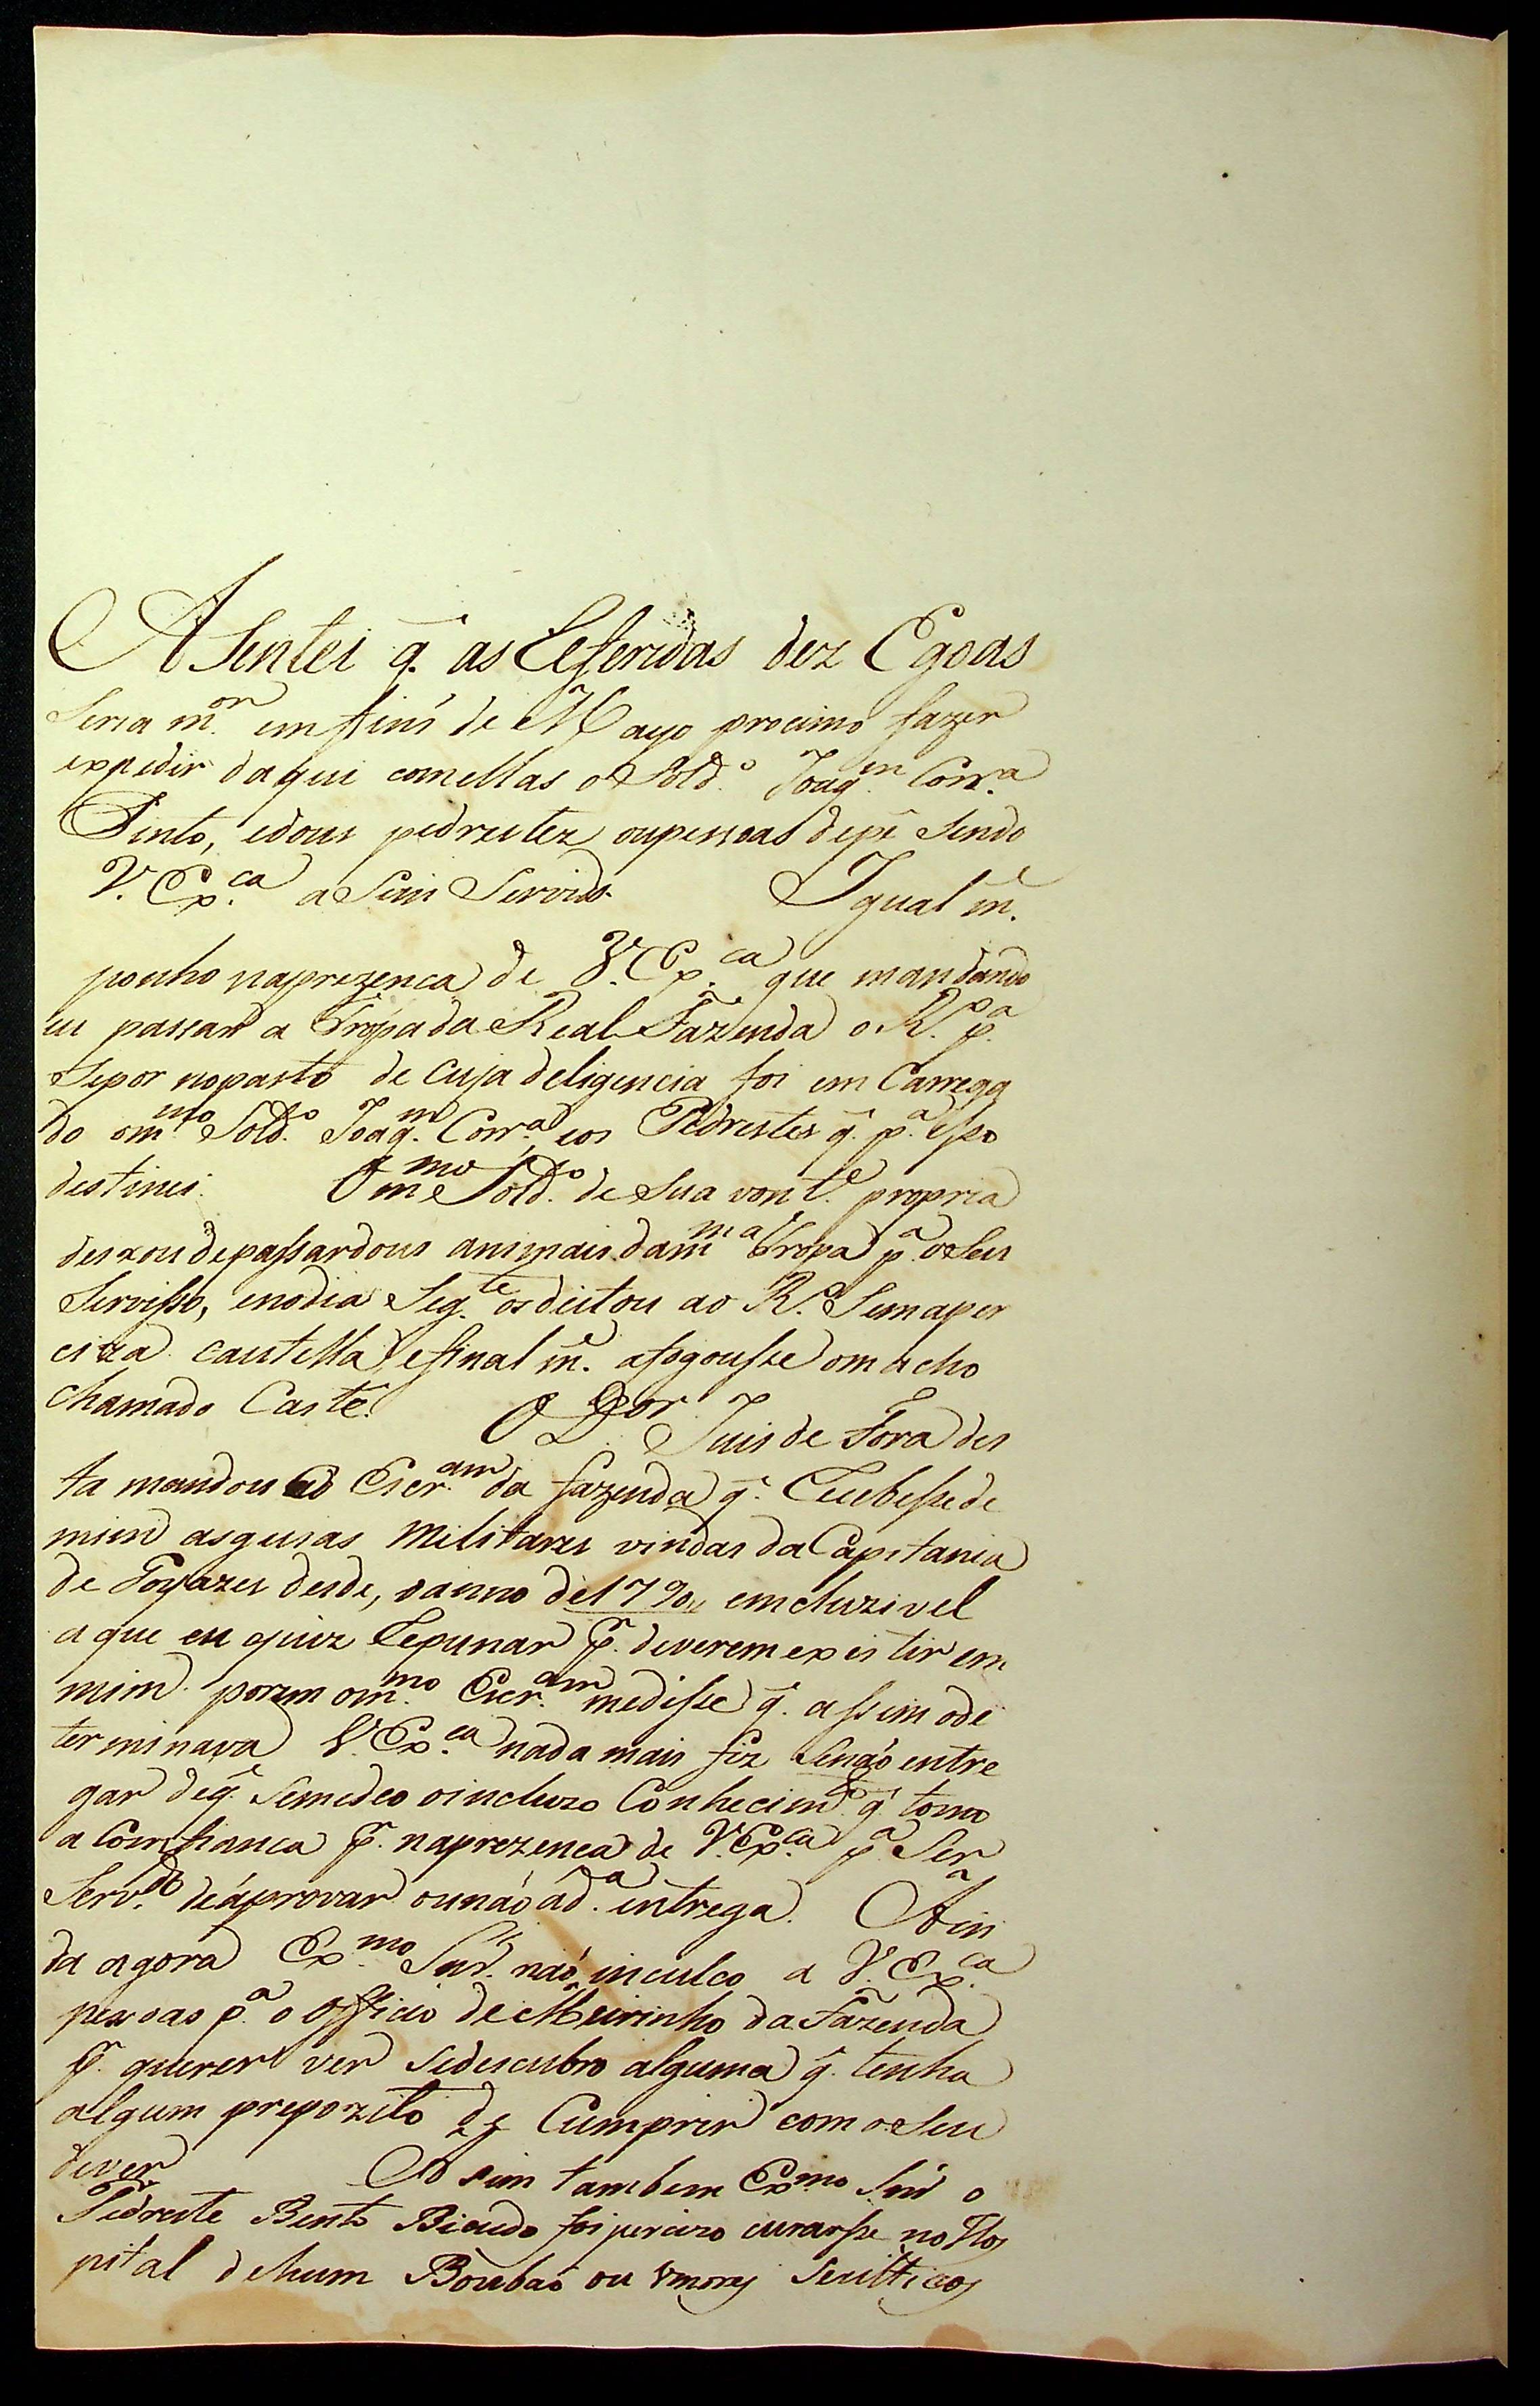 ASentei q. as Referidas dez Egoas
Seria m.or em fins de Mayo procimo fazer
expedir daqui comellas o Sold.o Joaq.m Corr.a
Pinto, edous pedrestez oupessoas depé Sendo
V. Ex.ca aSim Servido. Igualm.e
ponho naprezenca de V. Ex.ca que mandando
eu passar a Tropa da Real Fazenda o R.o p.a
Sepor nopasto de cuja deligencia foi em Carrega
do om.mo Sold.o Joaq.m Corr.a eos Pedrestes q. p.a isso
destinei. O m.mo Sold.o de Sua vont.e propria
deixou depassar dous animais dam.ma Tropa p.a oSeu
Servisso, enodia Seg.te os deitou ao R.o Sem aper
ciza cautella efinalm.e afogousse omacho
chamado Caste. O D.or Juis de Fora des
ta mandou ao Escr.am da fazenda q. Recebesse de
mim asguias Militares vindas da Capitania
de Goyazes desde, oanno de 1790 emcluzivel
aque eu quiz Repunar p.r deverem existir em
mim porem om.mo Escr.am medisse q. assim ode
terminava V. Ex.ca nada mais fiz Senão entre
gar deq. Semedeo oincluzo Conhecim.to q. tomo
a Comfianca p.r naprezenca de V. Ex.ca p.a Ser
Serv.do deaprovar ounão ad.a entrega. Ain
da agora Ex.mo Snr. não inculco a V. Ex.ca
pessoas p.a o Officio de Meirinho da Fazenda
p.r querer ver Sedescubro alguma q. tenha
algum prepozito de Cumprir com oSeu
dever ASim tambem Ex.mo Snr o
Pedreste Bento Bicudo foi percizo curarsse no Hos
pital dehum Boubão ou